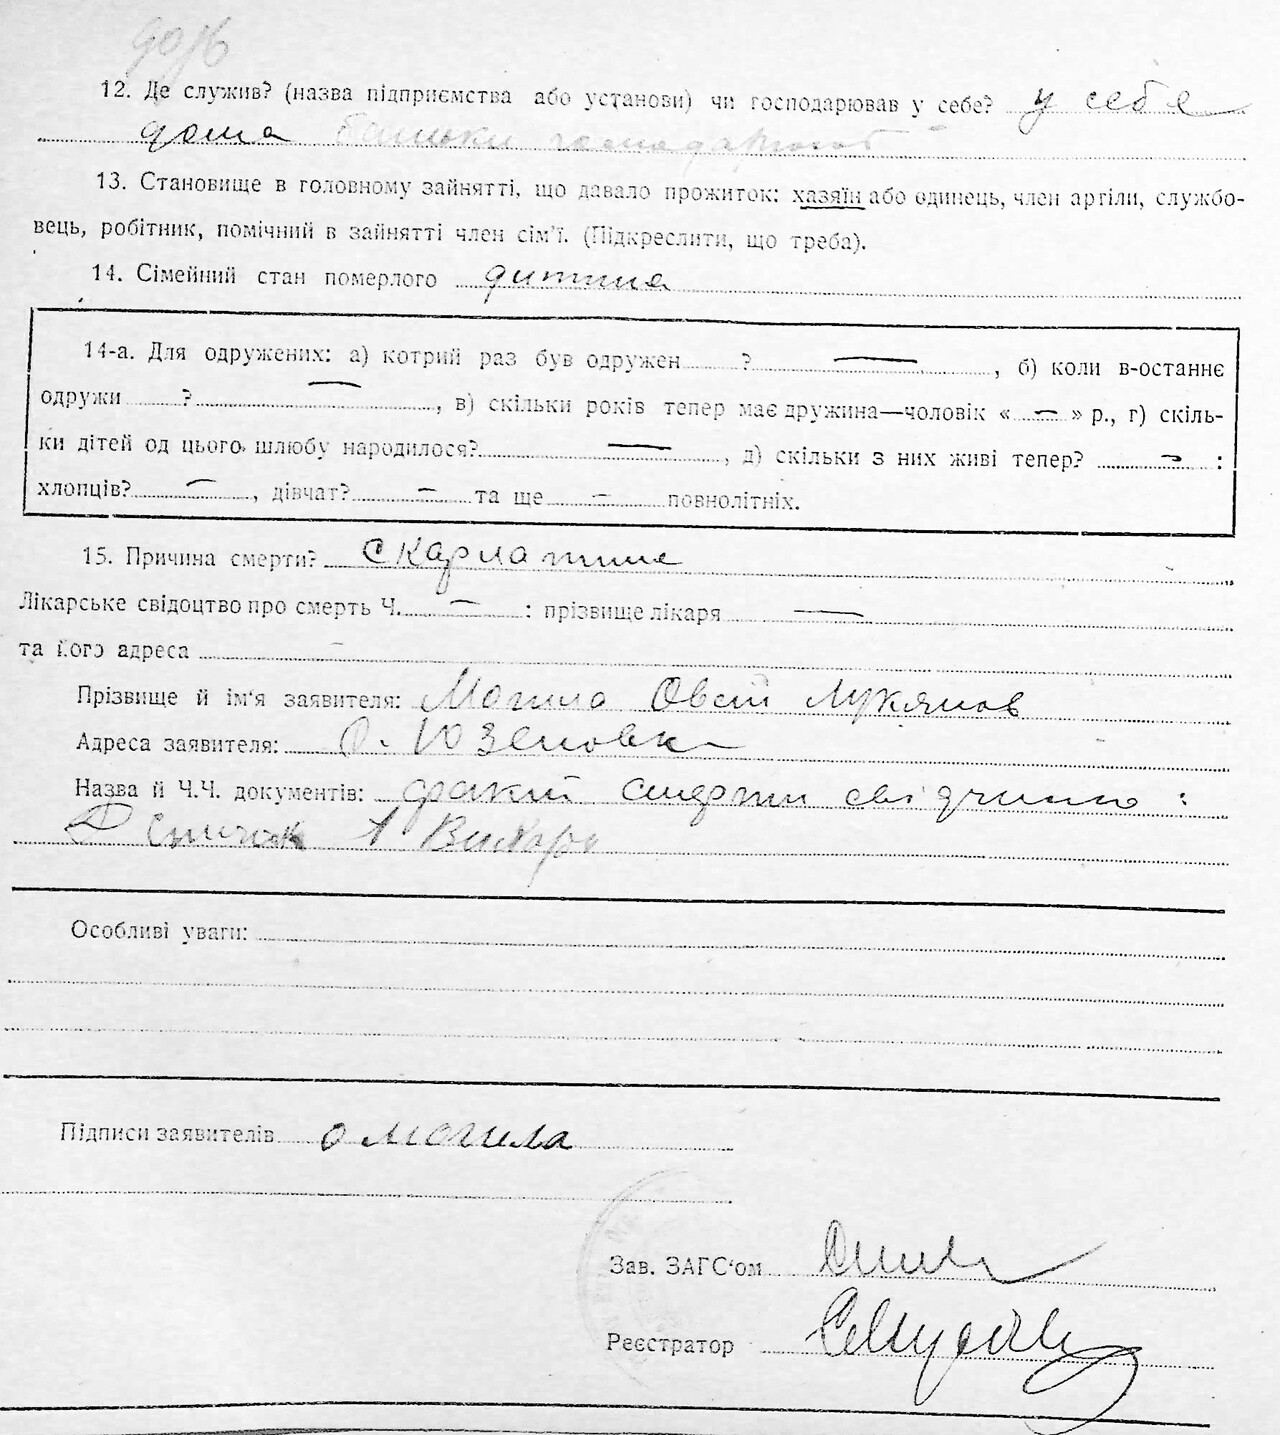 12. Де служив? (назва підприємства або установи) чи господарював у себе? у себе
дома батьки господарюют
13. Становище в головному зайнятті, що давало прожиток: хазяїн або одинець, член артіли, службо-
вець, робітник, помічний в зайнятті член сім'ї. (Підкреслити, що треба).
14. Сімейний стан померлого дитина
14-а. Для одружених: а) котрий раз був одружен ? — , б) коли в-останнє
одружи ? — , в) скільки років тепер має дружина—чоловік « — » р., г) скіль-
ки дітей од цього шлюбу народилося? — , д) скільки з них живі тепер? — :
хлопців? — , дівчат? — та ще — повнолітніх.
15. Причина смерти? скарлатина
Лікарське свідоцтво про смерть Ч. — : прізвище лікаря —
та його адреса —
Прізвище й ім'я заявителя: Могила Овсій Лукянов
Адреса заявителя: с. Юзеповка
Назва й Ч.Ч. документів: факт смерти свідчимо :
Особливі уваги:
Підписи заявителів О Могила
Зав. ЗАГС'ом
Реєстратор